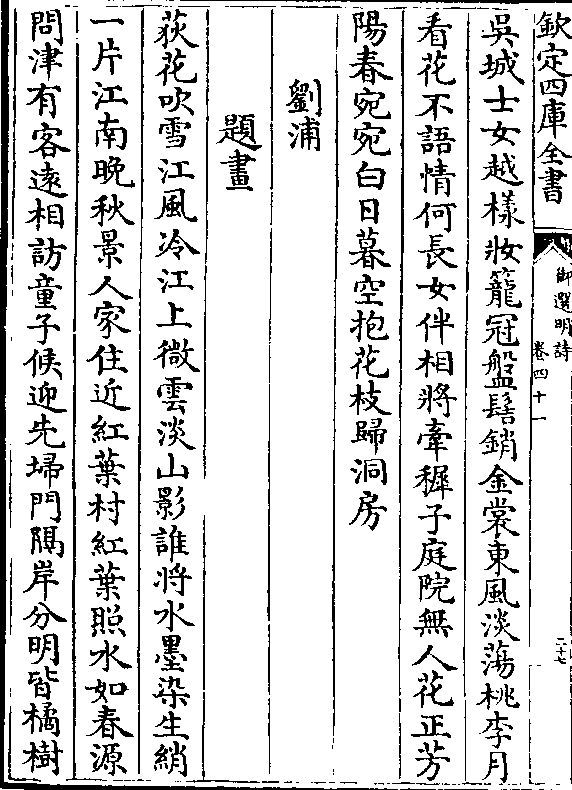 欽定四庫全書
御選明詩
卷四十一
二十七
吳城士女越樣妝籠冠盤髻銷金裳東風淡蕩桃李月
看花不語情何長女伴相將牽穉子庭院無人花正芳
陽春宛宛白日暮空抱花枝歸洞房
劉溥
題畫
荻花吹雪江風冷江上微雲淡山影誰將水墨染生綃
一片江南晚秋景人家住近紅葉村紅葉照水如春源
問津有客遠相訪童子候迎先埽門隔岸分明皆橘樹